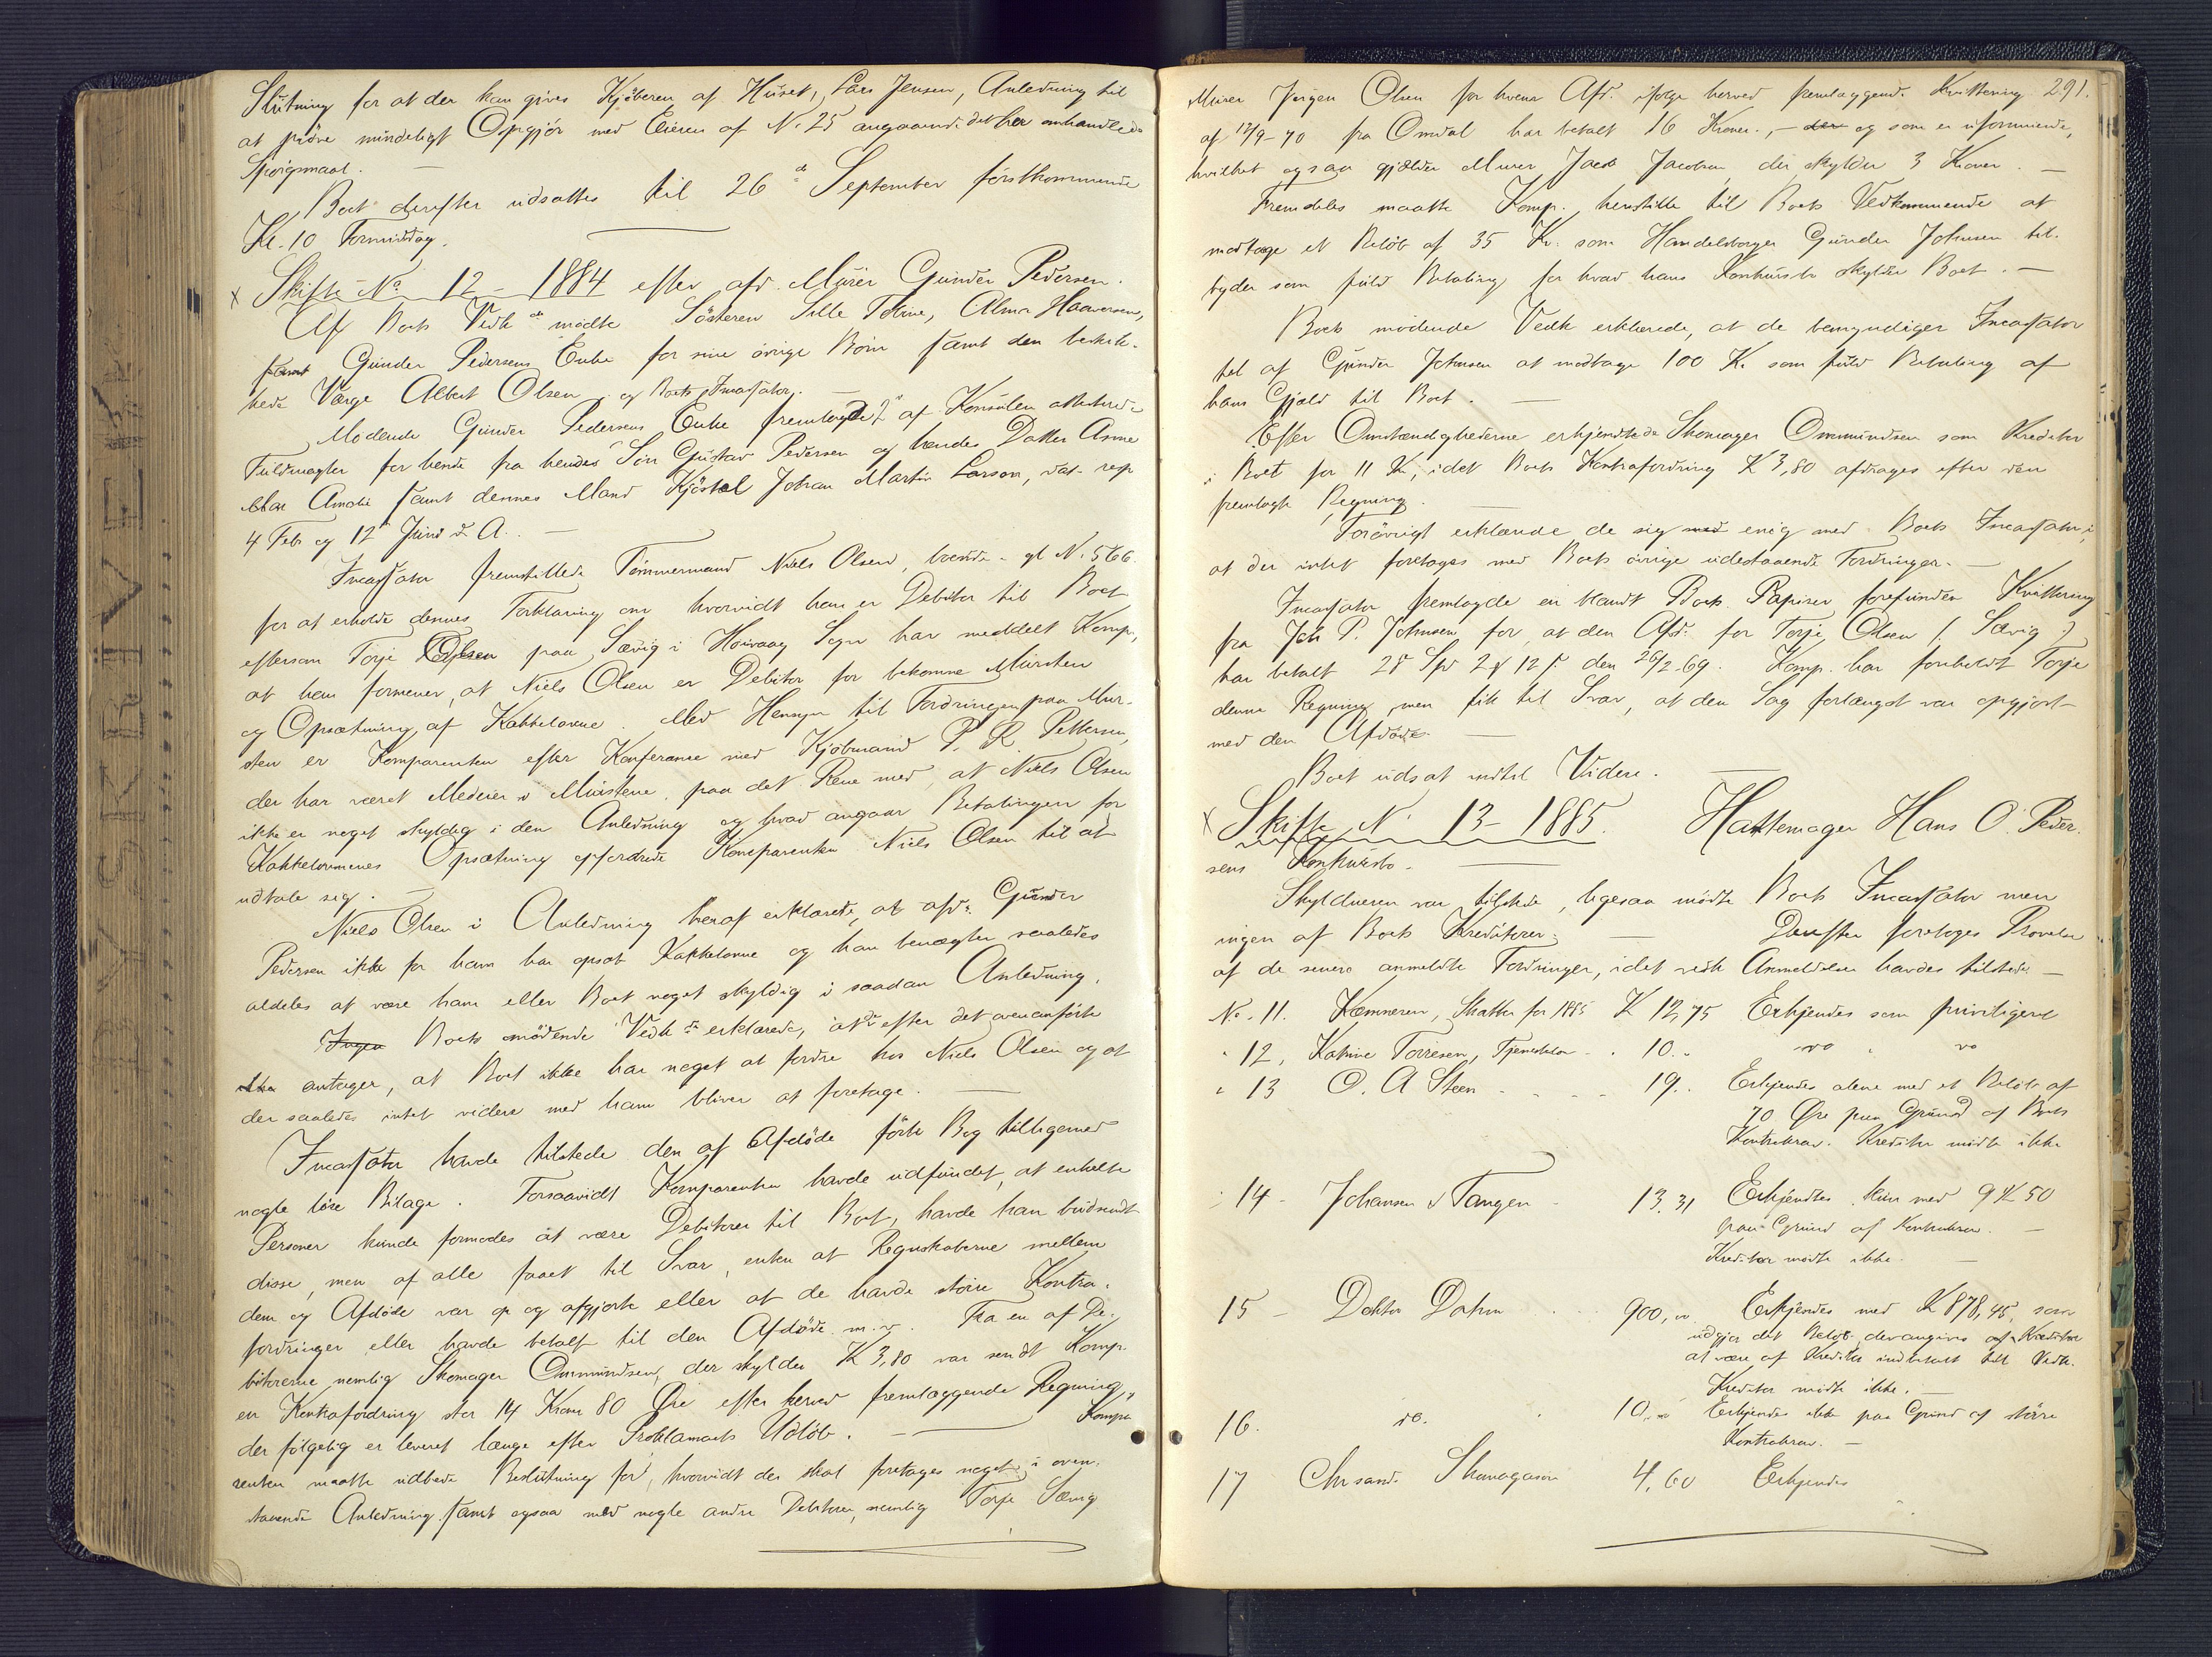 Slutning for at der kan gives Kjøberen af Huset, Lars Jensen, Anledning til
at prøve mindeligt Opgjør med Eieren af N. 25 angaaende det her omhandlede
Spørgsmaal. —
Boet derefter udsattes til 26de September førstkommende
Kl. 10 Formiddag.
x Skifte No. 12 - 1884 efter afd. Murer Gunder Pedersen.
Af Boets Vedk de mødte Søsteren Sille Toline, Alma Haaversen,
samt Gunder Pedersens Enke for sine øvrige Børn samt den beskik-
kede Værge Albert Olsen og Boets Incassator. —
Mødende Gunder Pedersens Enke fremlagde 2de af Konsulen attesterede
Fuldmagter for hende fra hendes Søn Gustav Pedersen og hendes Datter Anne
Amalie samt dennes Mand Johan Martin Larson, dat. resp
4 Feb og 12 Juni d. A. —
Incassator fremstillede Tømmermand Niels Olsen, boende gl N. 566
for at erholde dennes Forklaring om hvorvidt han er Debitor til Boet
eftersom Torje Olsen paa Sævig i Høivaag Sogn har meddelt Komp.,
at han formener, at Niels Olsen er Debitor for bekomne Mursten
og Opsætning af Kakkelovne. Med Hensyn til Fordringen paa Mur-
sten er Komparenten efter Konferanse med Kjøbmand P. R. Pettersen,
der har været Medeier i Murstene, paa det Rene med at Niels Olsen
ikke er noget skyldig i den Anledning og hvad angaar Betalingen for
Kakkelovnenes Opsætning opfordrede Komparenten Niels Olsen til at
udtale sig. —
Niels Olsen i Anledning heraf erklærede, at afd. Gunder
Pedersen ikke for ham har opsat Kakkelovne og han benægter saaledes
aldeles at være ham eller Boet noget skyldig i saadan Anledning.
Ingen Boets mødende Vedk de erklærede, at de efter det ovenanførte
antager, at Boet ikke har noget at fordre hos Niels Olsen og at
der saaledes intet videre med ham bliver at foretage. —
Incassator havde tilstede den af Afdøde førte Bog tilligemed
nogle løse Bilage. Forsaavidt Komparenten havde udfundet, at enkelte
Personer kunde formodes at være Debitorer til Boet, havde han budsendt
disse, men af alle faaet til Svar, enten at Regnskaberne mellem
dem og Afdøde var op og afgjort eller at de havde større Kontra-
fordringer eller havde betalt til den Afdøde m. v. Fra en af De-
bitorerne nemlig Skomager Ommundsen, der skylder K 3,80 var sendt Komp.
en Kontrafordring stor 14 Kroner 80 Øre efter herved fremlæggende Regning,
der følgelig er leveret længe efter Proklamaets Udløb. — Kompa
renten maatte udbede Beslutning for, hvorvidt der skal foretages noget i oven-
staaende Anledning samt ogsaa med nogle andre Debitorer, nemlig Torje Sævig
291.
Murer Jørgen Olsen for hvem Afd. ifølge herved fremlæggende Kvittering
af 12/9-70 fra Omdal har betalt 16 Kroner, — der og som er uformuende,
hvilket ogsaa gjælder Murer Jacob Jacobsen der skylder 3 Kroner. —
Fremdeles maatte Komp. henstille til Boets Vedkommende at
modtage et Beløb af 35 Kr. som Handelsborger Gunder Johnsen til-
byder som fuld Betaling for hvad hans Konkursbo skylder Boet. —
Boets mødende Vedk erklærede, at de bemyndiger Incassator
til af Gunder Johnsen at modtage 100 K. som fuld Betaling af
hans Gjæld til Boet. —
Efter Omstændighederne erkjendte de Skomager Ommundsen som Kreditor
i Boet for 11 K, idet Boets Kontrafordring K 3,80 afdrages efter den
fremlagte Regning. —
Forøvrigt erklærede de sig med enig med Boets Incassator i,
at der intet foretages med Boets øvrige udestaaende Fordringer. —
Incassator fremlagde en blandt Boets Papirer forefunden Kvittering
fra Joh P. Johnsen for at den Afd. for Torje Olsen /: Sævig :/
har betalt 28 Spd 2 # 12 s den 26/2-69. Komp. har foreholdt Torje
denne Regning men fik til Svar, at den Sag forlængst var opgjort
med den Afdøde. —
Boet udsat indtil Videre. —
x Skifte N. 13 - 1885. Hattemager Hans O. Peder-
sens Konkursbo. —
Skyldneren var tilstede, ligesaa mødte Boets Incassator men
ingen af Boets Kreditorer. — Derefter foretoges Prøvelse
af de senere anmeldte Fordringer, idet vedk Anmeldelser havdes tilstede —
No. 11. Kæmneren, Skatter for 1885 K 12,75 Erkjendes som priviligeret
" 12, Katrine Torresen, Tjenesteløn " 10.. do do
" 13 O. A Steen 19. Erkjendes alene med et Beløb af
70 Øre paa Grund af Boets
Kontrakrav. Kreditor mødte ikke
" 14 - Johansen & Tangen 13.31 Erkjendtes kun med 9 K 50
paa Grund af Kontrakrav. —
Kreditor mødte ikke. —
15 - Doktor Dahm 900,00 Erkjendes med K 878,45, som
udgjør det Beløb der angives af Kreditor
at være af Kreditor indbetalt til Vedk.
Kreditor mødte ikke. —
16. do. 10,00 Erkjendes ikke paa Grund af større
Kontrakrav. —
17 Chrsands Skomagasin 4,60 Erkjendes